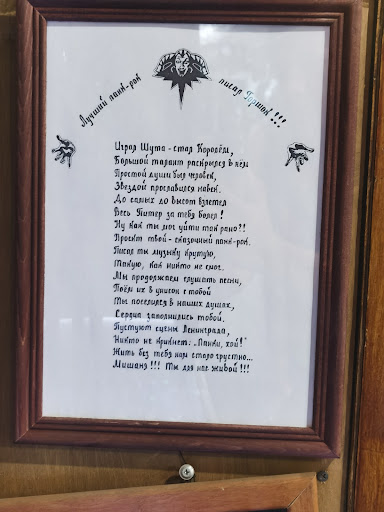 Лучший панк-рок писал Горшок!!!
Играл Шута - стал Королём,
Большой талант раскрылся в нём
Простой души был человек,
Звездой прославился навек.
До самых до высот взлетел
Весь Питер за тебя болел!
Ну как ты мог уйти так рано?!
Проект твой - сказочный панк-рок.
Писал ты музыку крутую,
Такую, как никто не смог.
Мы продолжаем слушать песни,
Поём их в унисон с тобой
Ты поселился в наших душах,
Сердца заполнились тобой.
Пустуют сцены Ленинграда,
Никто не крикнет: „Панки, хой!"
Жить без тебя нам стало грустно...
Мишаня!!! Ты для нас живой!!!